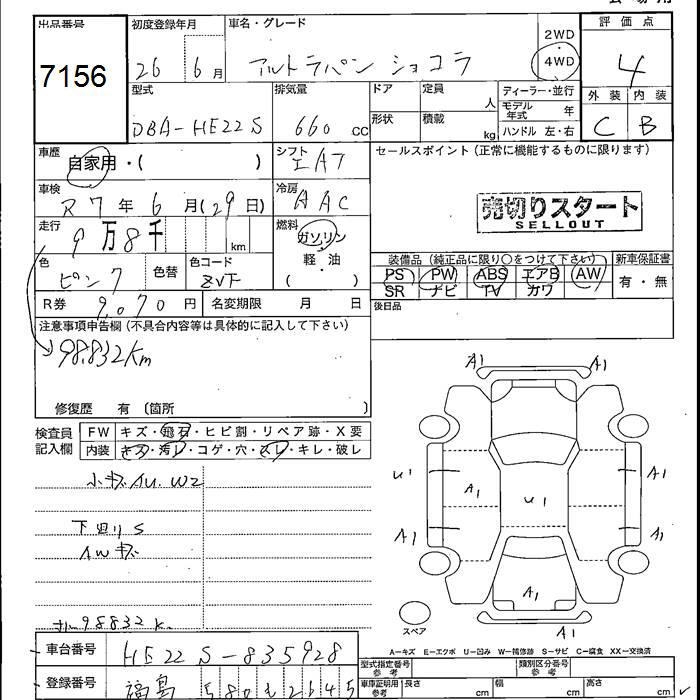 出品番号 初度登録年月 車名・グレード 評価点
7156 26 6月 アルトラパン ショコラ 2WD 4WD 4
型式 排気量 ドア 定員 人 ディーラー・並行 外装 内装
DBA-HE22S 660 CC 形状 積載 kg モデル年式 年 ハンドル 左・右 C B
車歴 自家用・( ) シフト IAT セールスポイント(正常に機能するものに限ります)
車検 R7年6月(29日) 冷房 AAC
売切りスタート
SELLOUT
走行 9万8千 km 燃料 ガソリン
軽・油
( )
色 ピンク 色替 色コード ZVF
装備品(純正品に限り○をつけて下さい) 新車保証書
PS PW ABS エアB AW 有・無
SR ナビ TV カワ
R券 9,070円 名変期限 月 日 後日品
注意事項申告欄(不具合内容等は具体的に記入して下さい)
98,832km
修復歴 有 (箇所 )
検査員記入欄 FW キズ・飛石・ヒビ割・リペア跡・X要
内装 キズ・汚レ・コゲ・穴・スレ・キレ・破レ
小キズAU.W2
下回りS
AWキズ
98832K
A1 A1
U1 A1 U1 A1
A1 A1
A1
スペア A1
A−キズ E−エクボ U−凹み W−補修跡 S−サビ C−腐食 XX−交換済
車台番号 HE22S-835928 型式指定番号 参考 類別区分番号 参考
登録番号 福島 580 2645 車庫証明用 参考 長さ cm 幅 cm 高さ cm